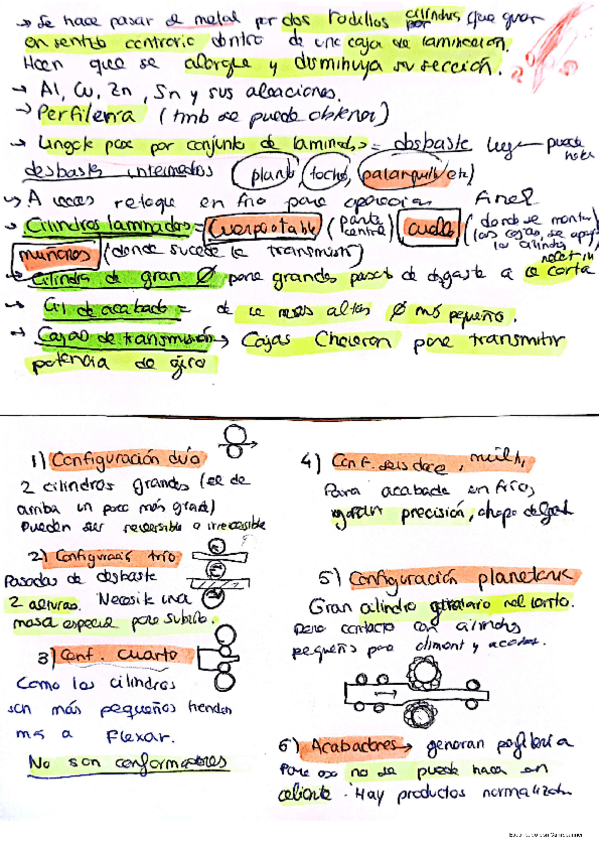 → Se hace pasar el metal por dos rodillos cilíndricos que giran
en sentido contrario dentro de una caja de laminación.
Hacen que se alargue y disminuya su sección.
→ Al, Cu, Zn, Sn y sus aleaciones.
→ Perfilería (tmb se puede obtener)
→ Lingote pasa por conjunto de laminados = desbaste
desbastes intermedios (planto, tocho, palanquilla etc)
↳ A veces retoque en frío para apariencia final
→ Cilindros laminados = Cuerpo o tabla (parte central) cuello (donde se montan
muñones (donde sucede la transmisión)
→ Cilindro de gran Ø para grandes pasos de desgaste
→ Cil de acabado = de Ø más pequeño.
→ Cajas de transmisión → Cajas Chevron para transmitir
potencia de giro
1) Configuración dúo
2 cilindros grandes (el de
arriba un poco más grande)
Pueden ser reversible o irreversible
2) Configuración trío
Pasadas de desbaste
2 alturas. Necesita una
mesa especial para subirlo.
3) Conf. cuarto
Como los cilindros
son más pequeños tienden
más a flexar.
No son conformadores
4) Conf. seis doce, multi,
Para acabado en frío,
precisión, chapa delgada
5) Configuración planetaria
Gran cilindro giratorio
pero contacto con cilindros
pequeños para aliment y acabar.
6) Acabadores → generan perfilería
Para eso no se puede hacer en
caliente. Hay productos normalizados